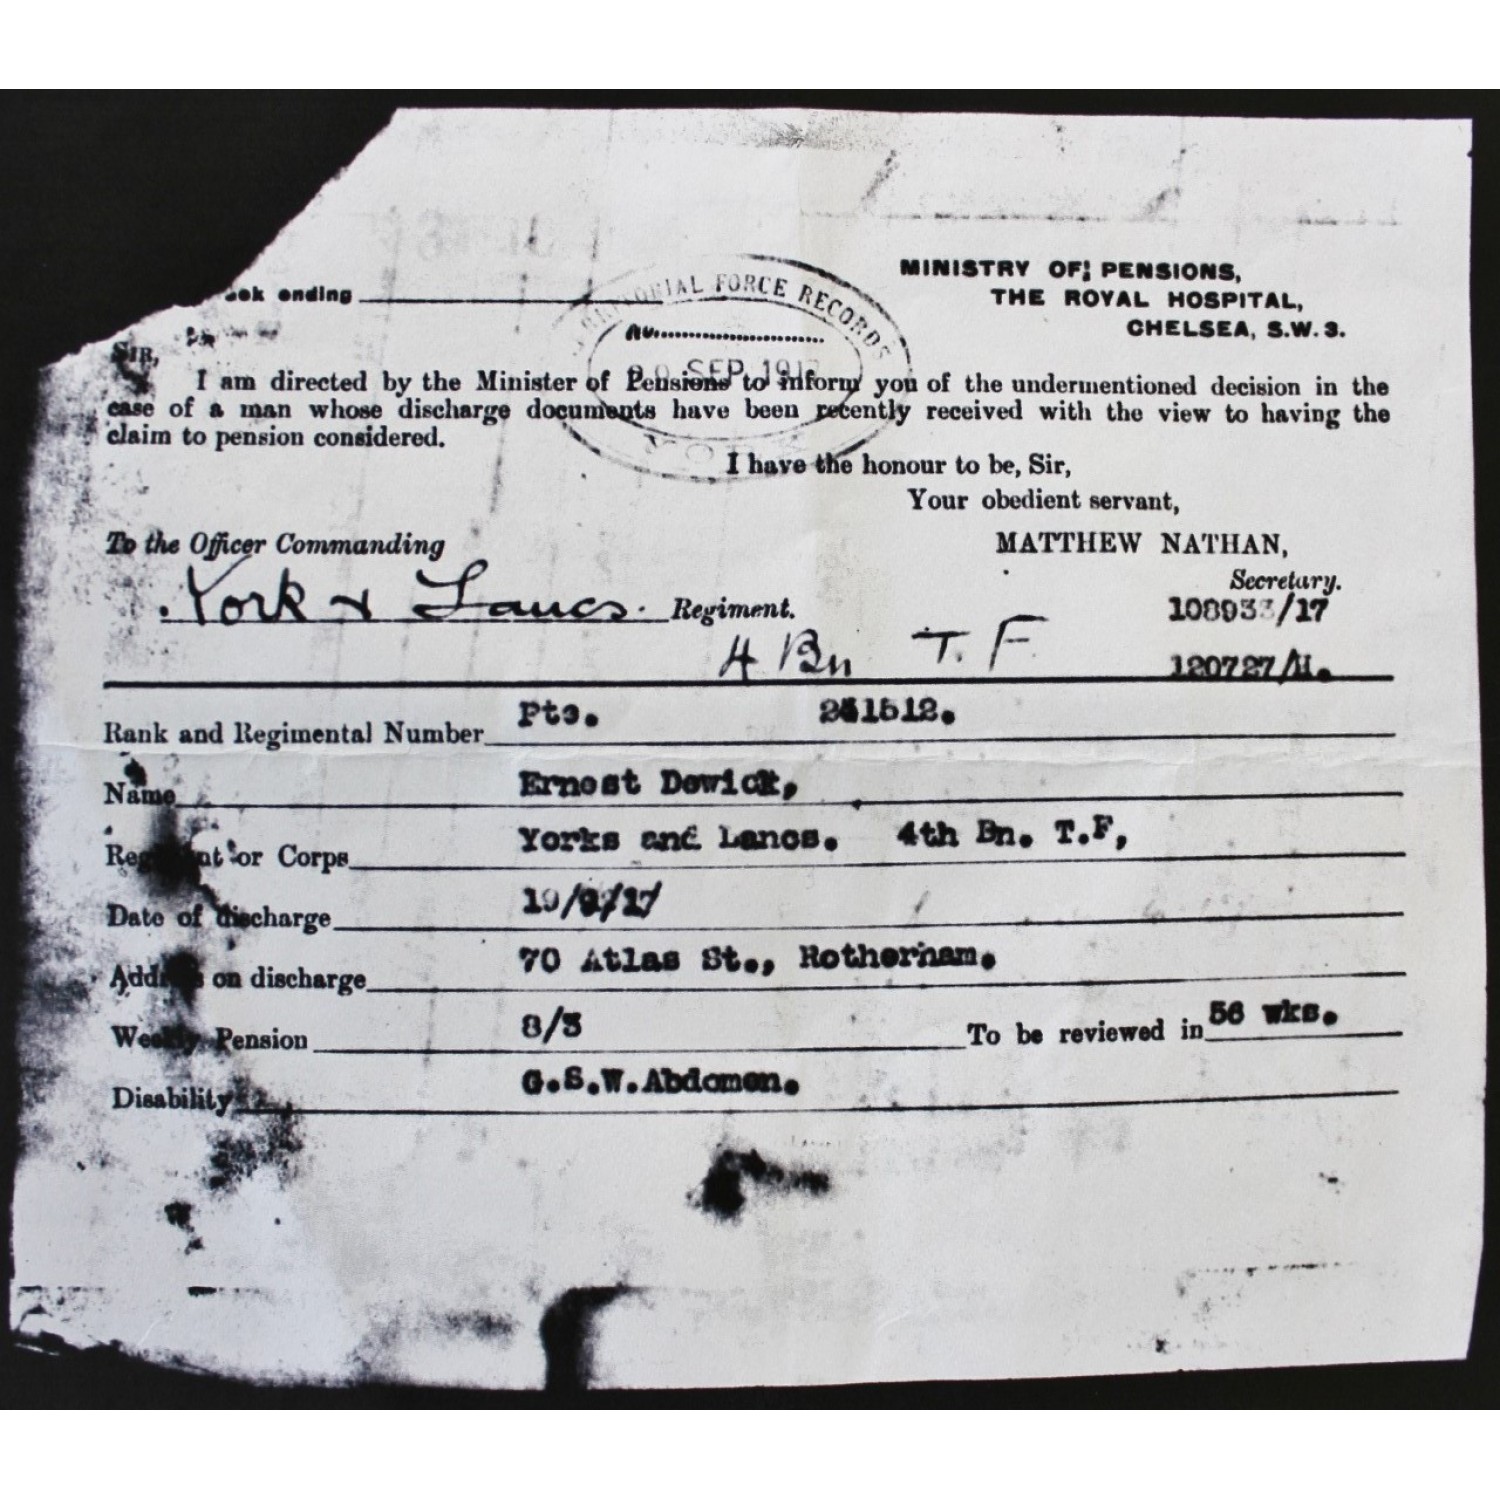 ending
TERRITORIAL FORCE RECORDS
SEP 191
YORK
MINISTRY OF PENSIONS,
THE ROYAL HOSPITAL,
CHELSEA, S.W. 3.
SIR,
I am directed by the Minister of Pensions to inform you of the undermentioned decision in the
case of a man whose discharge documents have been recently received with the view to having the
claim to pension considered.
I have the honour to be, Sir,
Your obedient servant,
To the Officer Commanding
MATTHEW NATHAN,
Secretary.
York & Lancs. Regiment.
4 Bn T. F.
120727/M.
Rank and Regimental Number Pte.
Name Ernest Dewick,
Regiment or Corps Yorks and Lancs. 4th Bn. T.F,
Date of discharge
Address on discharge 70 Atlas St., Rotherham.
Weekly Pension 8/3 To be reviewed in 56 wks.
Disability G.S.W.Abdomen.